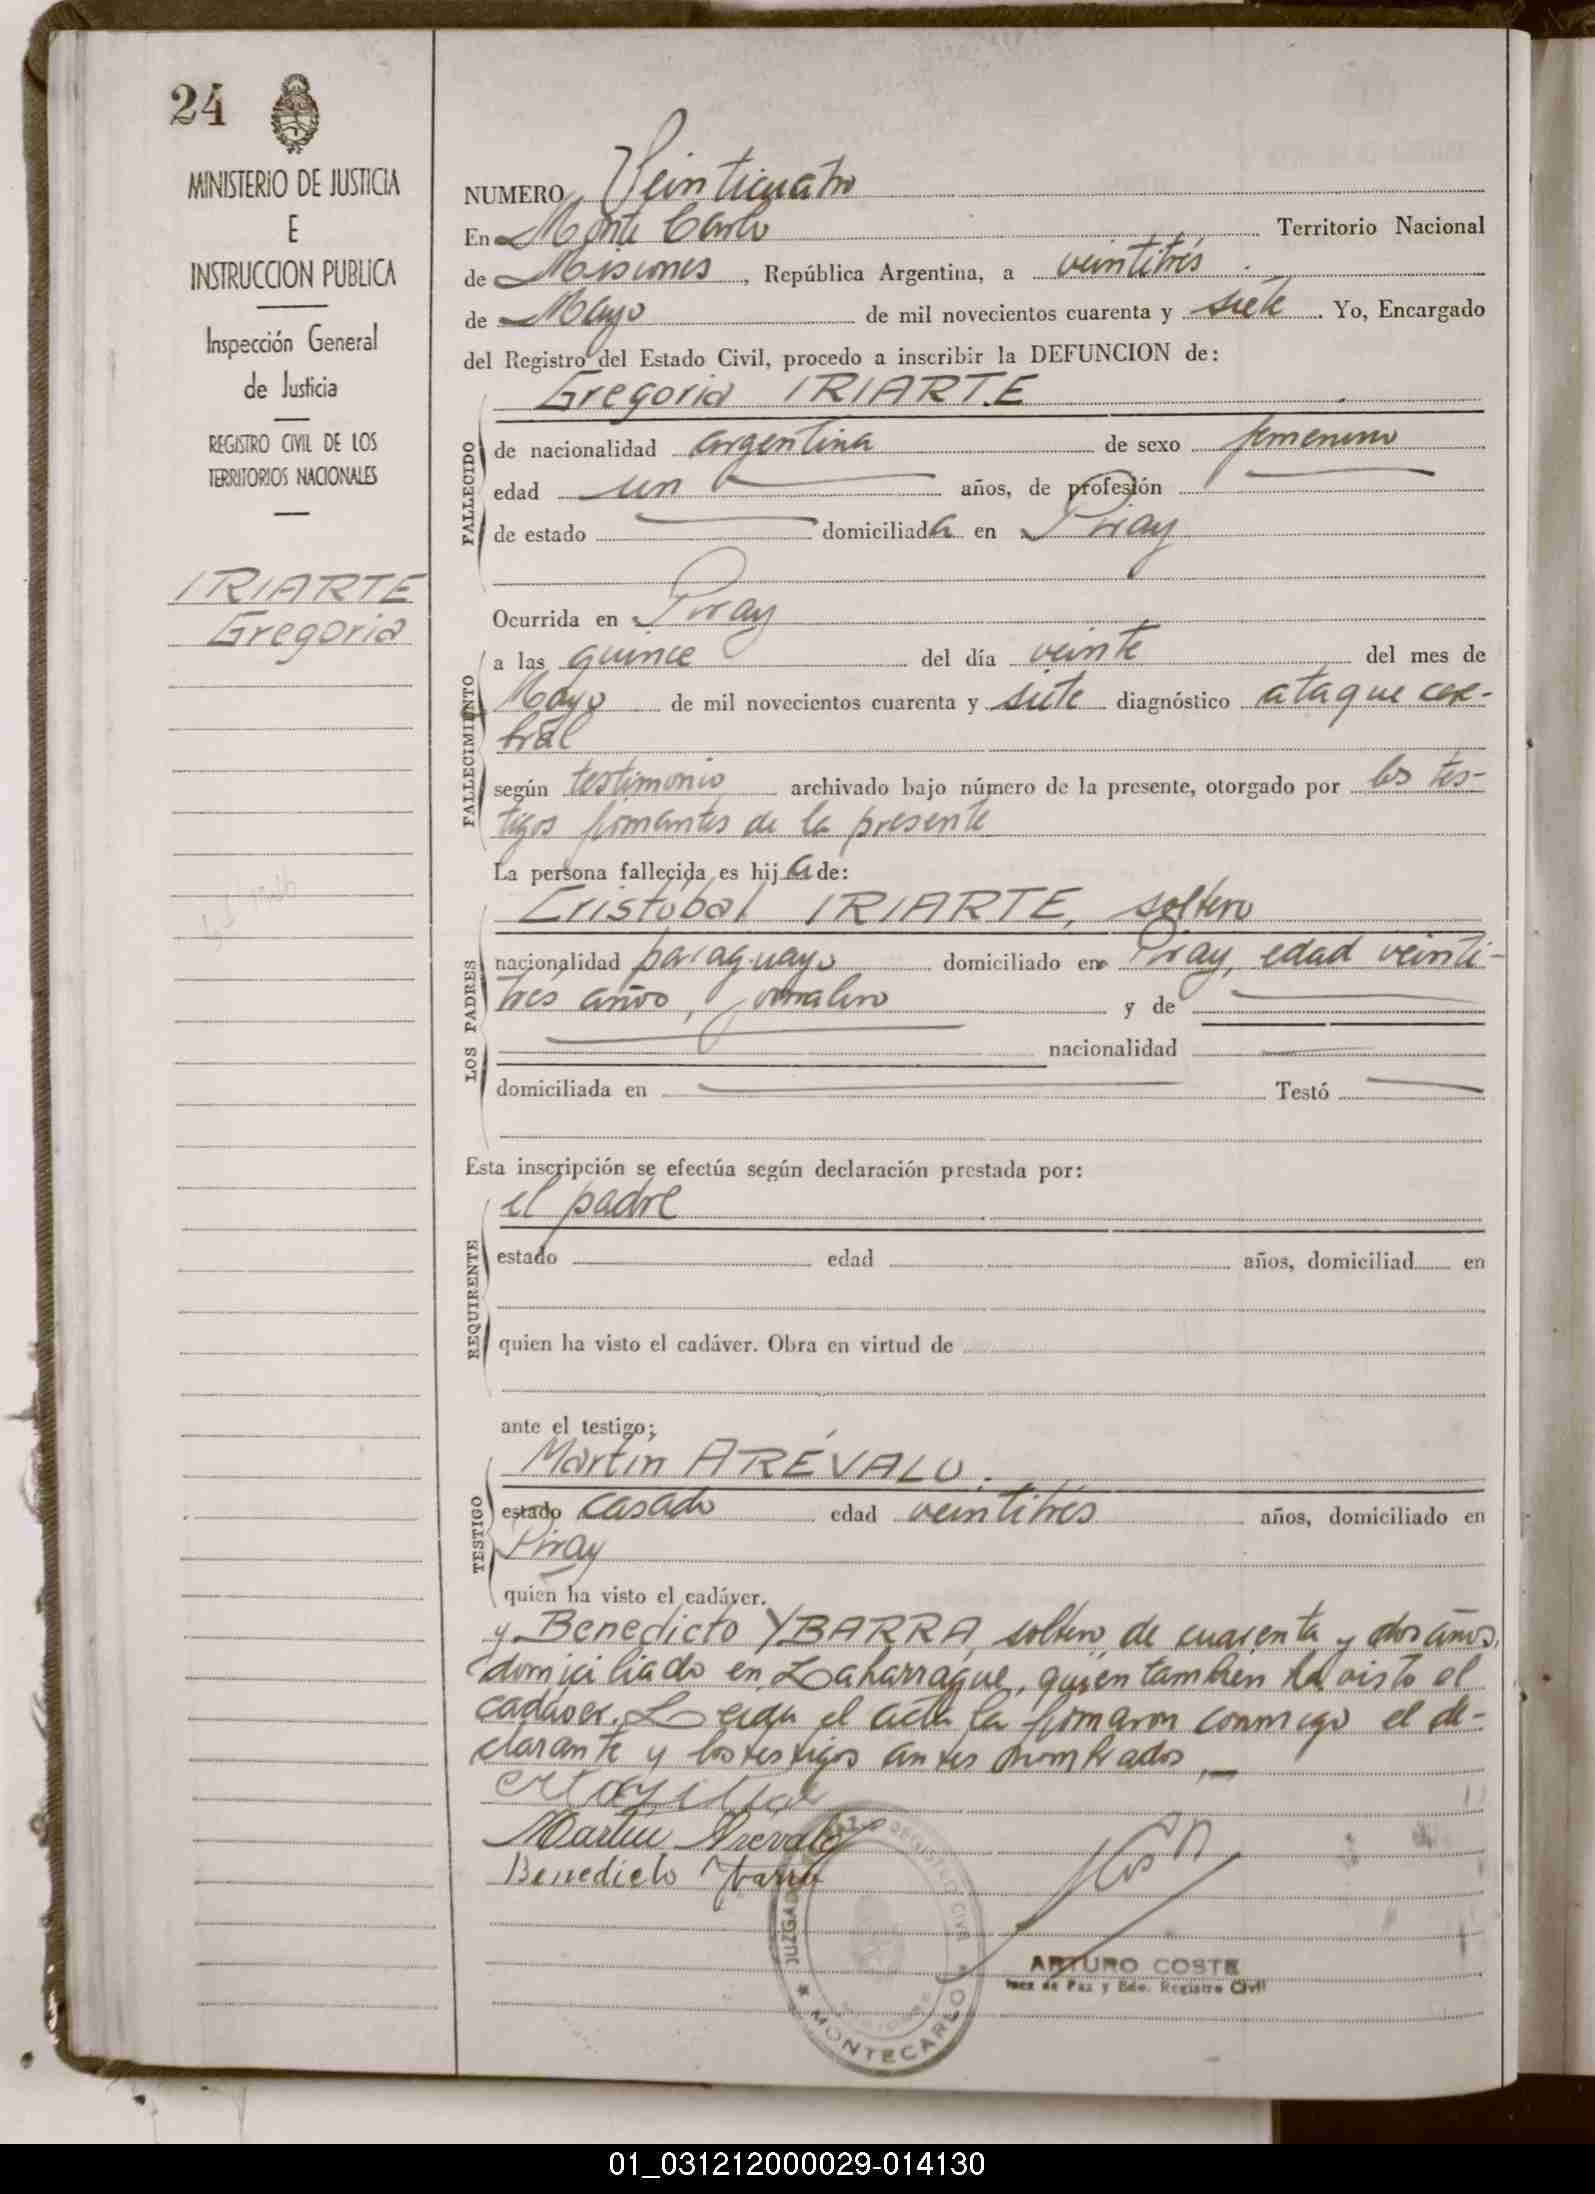 24
MINISTERIO DE JUSTICIA
E
INSTRUCCION PUBLICA
Inspección General
de Justicia
REGISTRO CIVIL DE LOS
TERRITORIOS NACIONALES
IRIARTE
Gregoria
NUMERO Veinticuatro
En Monte Carlo Territorio Nacional
de Misiones, República Argentina, a veintitrés
de Mayo de mil novecientos cuarenta y siete. Yo, Encargado
del Registro del Estado Civil, procedo a inscribir la DEFUNCION de:
Gregoria IRIARTE
FALLECIDO
de nacionalidad argentina de sexo femenino
edad un años, de profesión
de estado domiciliada en Piray
Ocurrida en Piray
FALLECIMIENTO
a las quince del día veinte del mes de
Mayo de mil novecientos cuarenta y siete diagnóstico ataque cere-
bral
según testimonio archivado bajo número de la presente, otorgado por los tes-
tigos firmantes de la presente
La persona fallecida es hija de:
Cristobal IRIARTE, soltero
LOS PADRES
nacionalidad paraguayo domiciliado en Piray, edad veinti-
trés años, jornalero y de
nacionalidad
domiciliada en Testó
Esta inscripción se efectúa según declaración prestada por:
el padre
REQUIRENTE
estado edad años, domiciliad en
quien ha visto el cadáver. Obra en virtud de
ante el testigo;
Martín ARÉVALO.
TESTIGO
estado casado edad veintitrés años, domiciliado en
Piray
quien ha visto el cadáver.
y Benedicto YBARRA, soltero, de cuarenta y dos años,
domiciliado en Laharrague, quien también ha visto el
cadáver. Leida el acta la firmaron conmigo el de-
clarante y los testigos antes nombrados,—
Martin Arevalo
Benedicto Ybarra
JUZGADO REGISTRO CIVIL
MONTECARLO
ARTURO COSTE
Juez de Paz y Edo. Registro Civil
01_031212000029-014130